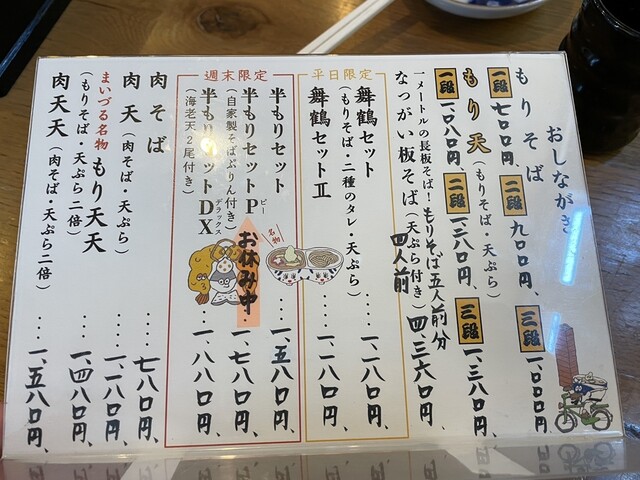 おしながき
もりそば
一段 七〇〇円、 二段 九〇〇円、 三段 一、〇〇〇円、
もり天 (もりそば・天ぷら)
一段 一、〇八〇円、 二段 一、二八〇円、 三段 一、三八〇円、
一メートルの長板そば!もりそば五人前分
なっがい板そば (天ぷら付き) 四人前 四、三六〇円、
平日限定
舞鶴セット ‥‥ 一、一八〇円、
(もりそば・二種のタレ・天ぷら)
舞鶴セットⅡ ‥‥ 一、一八〇円、
週末限定
半もりセット ‥‥ 一、五八〇円、
名物
半もりセットP ピー お休み中 ‥ 一、七八〇円、
(自家製そばぷりん付き)
半もりセットDX デラックス ‥‥ 一、八八〇円、
(海老天2尾付き)
肉そば ‥‥ 七八〇円、
肉天 (肉そば・天ぷら) ‥‥ 一、一八〇円、
まいづる名物 もり天天 ‥‥ 一、四八〇円、
(もりそば・天ぷら二倍)
肉天天 (肉そば・天ぷら二倍) ‥‥ 一、五八〇円、